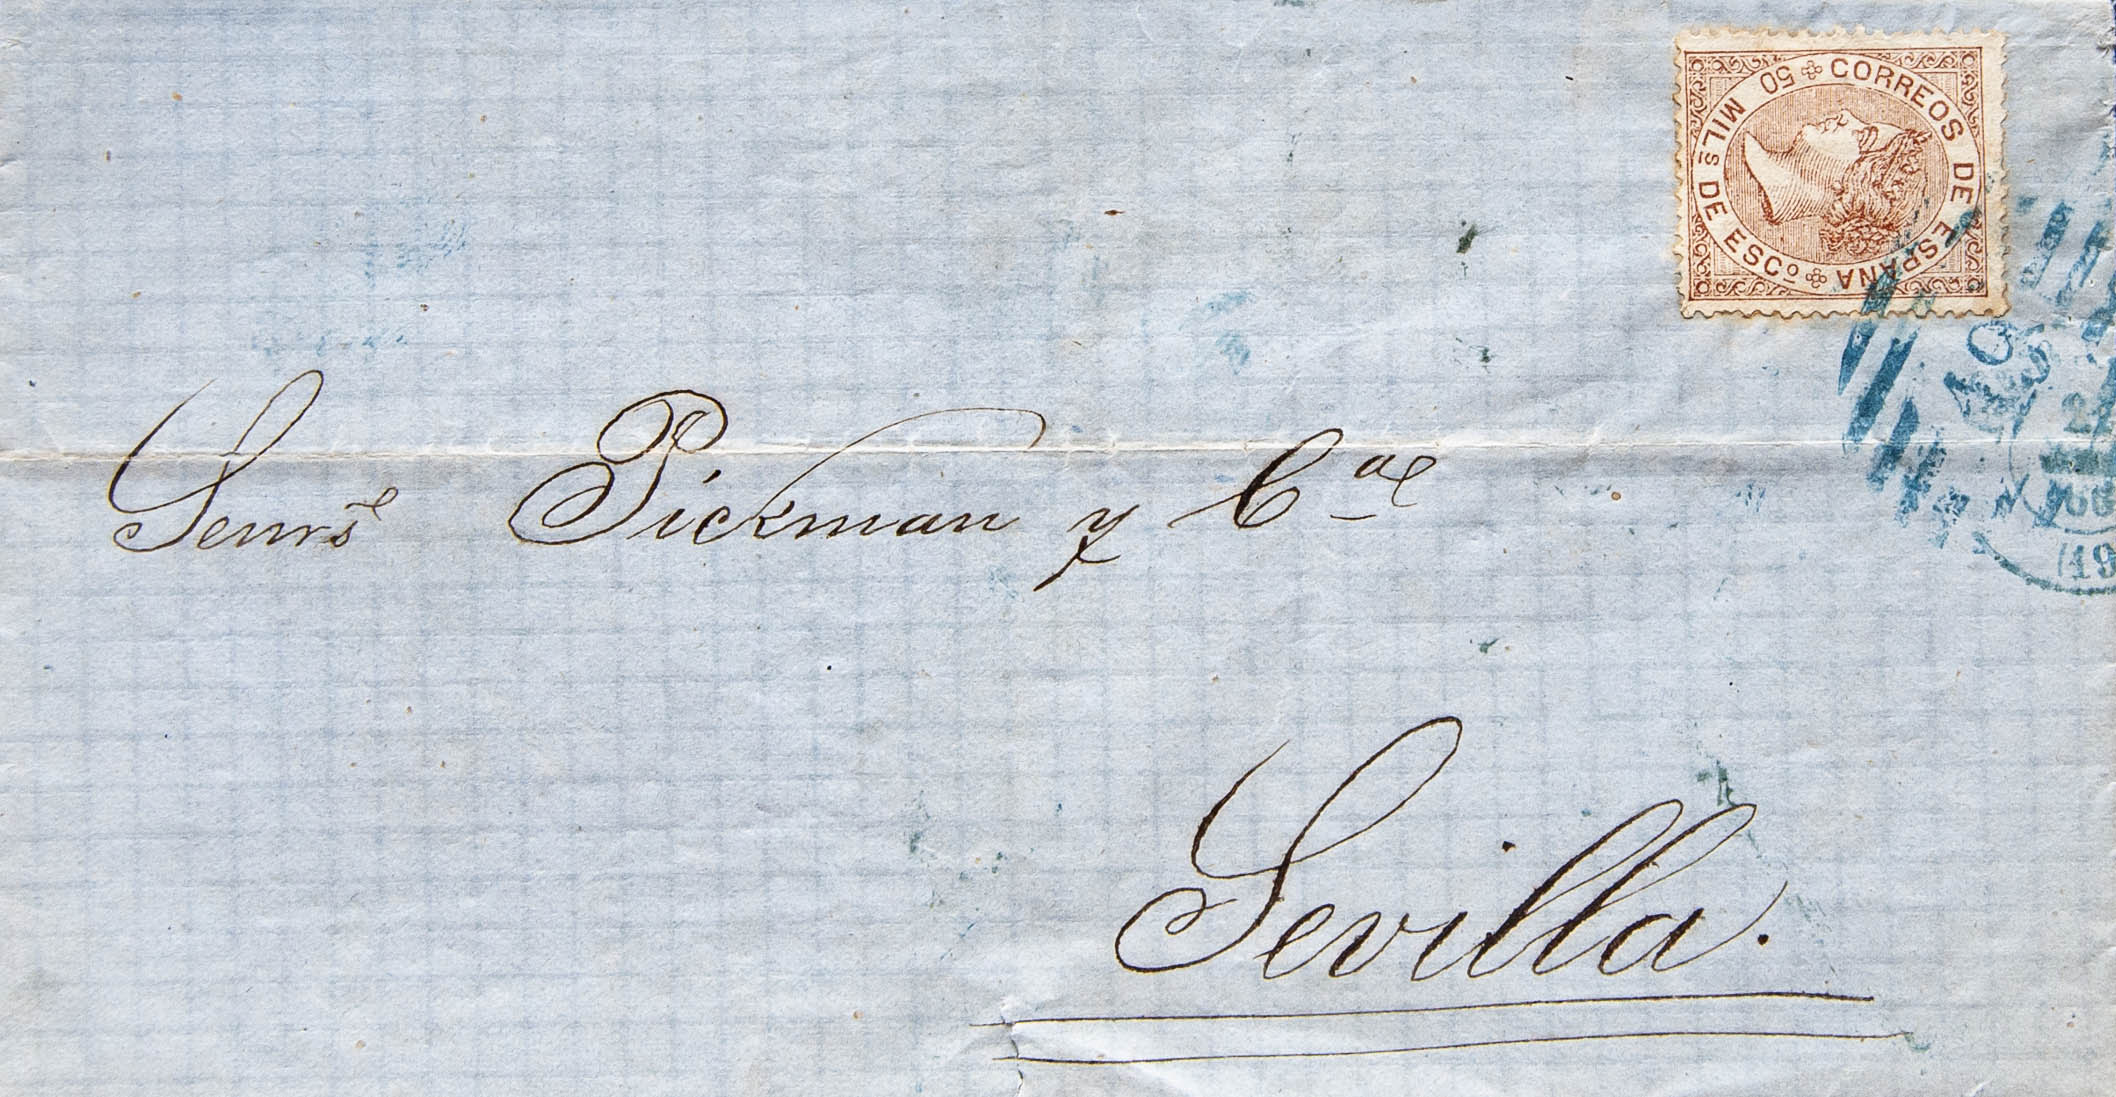 CORREOS DE ESPAÑA
50 MILs DE ESCo
Senrs Pickman y Cae
Sevilla.